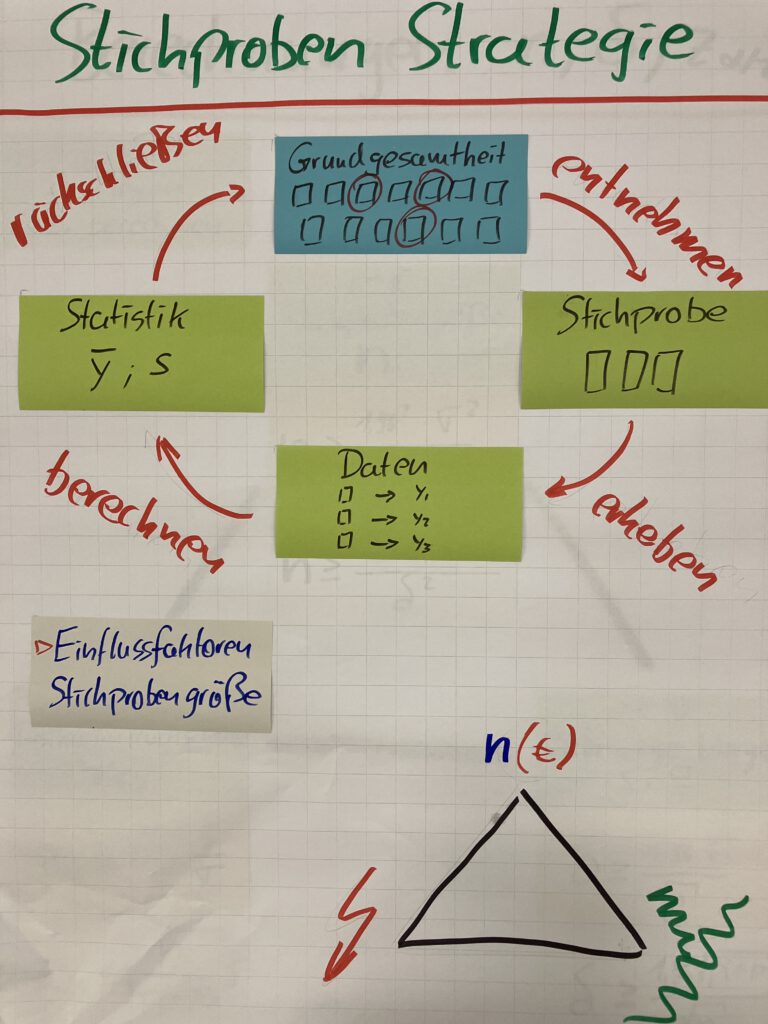 Stichproben Strategie
rückschließen
Grundgesamtheit
entnehmen
Statistik
ȳ ; s
Stichprobe
Daten
→ y₁
→ y₂
→ y₃
berechnen
erheben
Einflussfaktoren
Stichprobengröße
n(€)